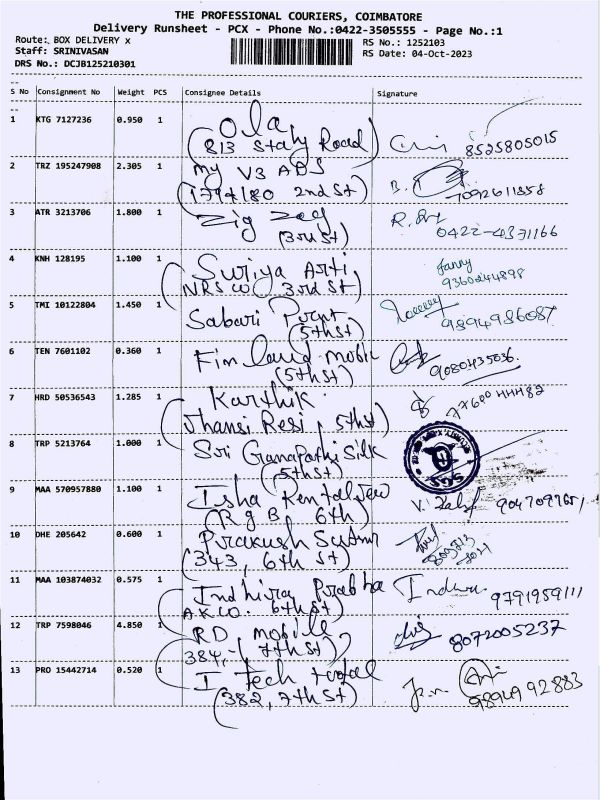 THE PROFESSIONAL COURIERS, COIMBATORE
Delivery Runsheet - PCX - Phone No.:0422-3505555 - Page No.:1
Route: BOX DELIVERY x
RS No.: 1252103
Staff: SRINIVASAN
RS Date: 04-Oct-2023
DRS No.: DCJB125210301
S No Consignment No Weight PCS Consignee Details Signature
1 KTG 7127236 0.950 1 Ola
(813 Road) 8525805015
2 TRZ 195247908 2.305 1 My V3 ADS
(1794/180 2nd St) 7092611858
3 ATR 3213706 1.800 1 Zig Zag
(3rd St) 0422-4371166
4 KNH 128195 1.100 1 Suriya Arti
3rd St) 9360244898
5 TMI 10122804 1.450 1 Sabari Print
(5th St) 9894986087
6 TEN 7601102 0.360 1 Fim land mobil
(5th St) 9080435036
7 HRD 50536543 1.285 1 Karthik
Jhansi Resi, 5th St)
8 TRP 5213764 1.000 1 Sri Ganapathi Silk
(5th St)
SGS
9 MAA 570957880 1.100 1 Isha Rental
(R g B 6th)
10 DHE 205642 0.600 1 Prakash
(343, 6th St)
11 MAA 103874032 0.575 1 Indhira Prabha
A.K.CO. 6th St) 9791959111
12 TRP 7598046 4.850 1 RD mobile
384, (7th St) 8072005237
13 PRO 15442714 0.520 1 I Tech total
(382, 7th St) 9894992883